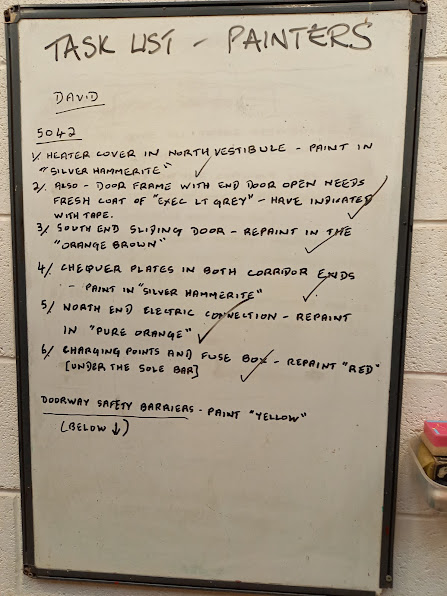 TASK LIST - PAINTERS
DAVID
5042
1/. HEATER COVER IN NORTH VESTIBULE - PAINT IN
"SILVER HAMMERITE"
2/. ALSO - DOOR FRAME WITH END DOOR OPEN NEEDS
FRESH COAT OF "EXEC LT GREY" - HAVE INDICATED
WITH TAPE.
3/. SOUTH END SLIDING DOOR - REPAINT IN THE
"ORANGE BROWN"
4/. CHEQUER PLATES IN BOTH CORRIDOR ENDS
- PAINT IN "SILVER HAMMERITE"
5/. NORTH END ELECTRIC CONNECTION - REPAINT
IN "PURE ORANGE"
6/. CHARGING POINTS AND FUSE BOX - REPAINT "RED"
[UNDER THE SOLE BAR]
DOORWAY SAFETY BARRIERS - PAINT "YELLOW"
(BELOW ↓)